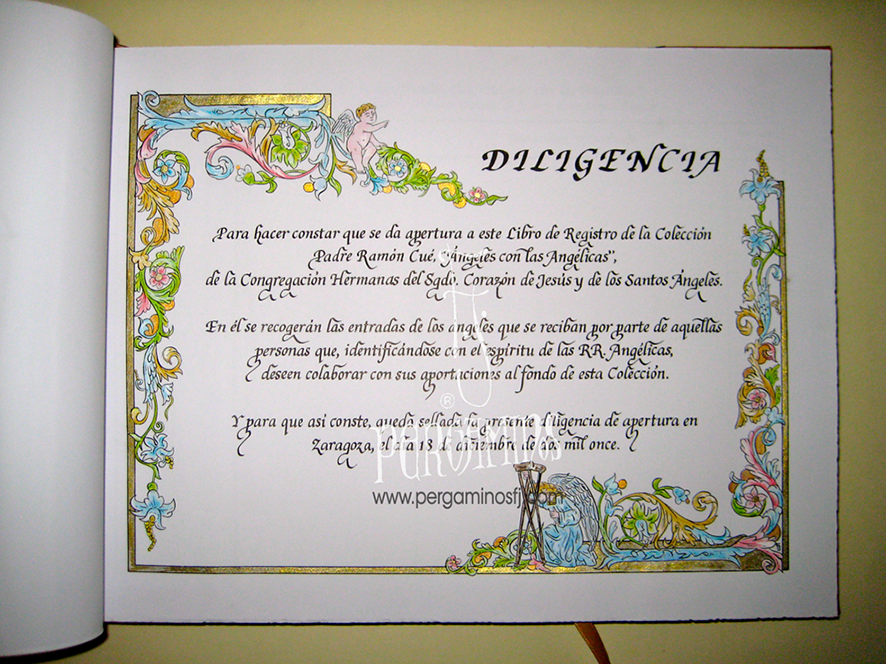 DILIGENCIA
Para hacer constar que se da apertura a este Libro de Registro de la Colección
Padre Ramón Cué, "Ángeles con las Angélicas",
de la Congregación Hermanas del Sgdo. Corazón de Jesús y de los Santos Ángeles.
En él se recogerán las entradas de los ángeles que se reciban por parte de aquellas
personas que, identificándose con el espíritu de las RR. Angélicas,
deseen colaborar con sus aportaciones al fondo de esta Colección.
Y para que así conste, queda sellada la presente diligencia de apertura en
Zaragoza, el día 13 de diciembre de dos mil once.
®
PERGAMINOS
www.pergaminosfj.com